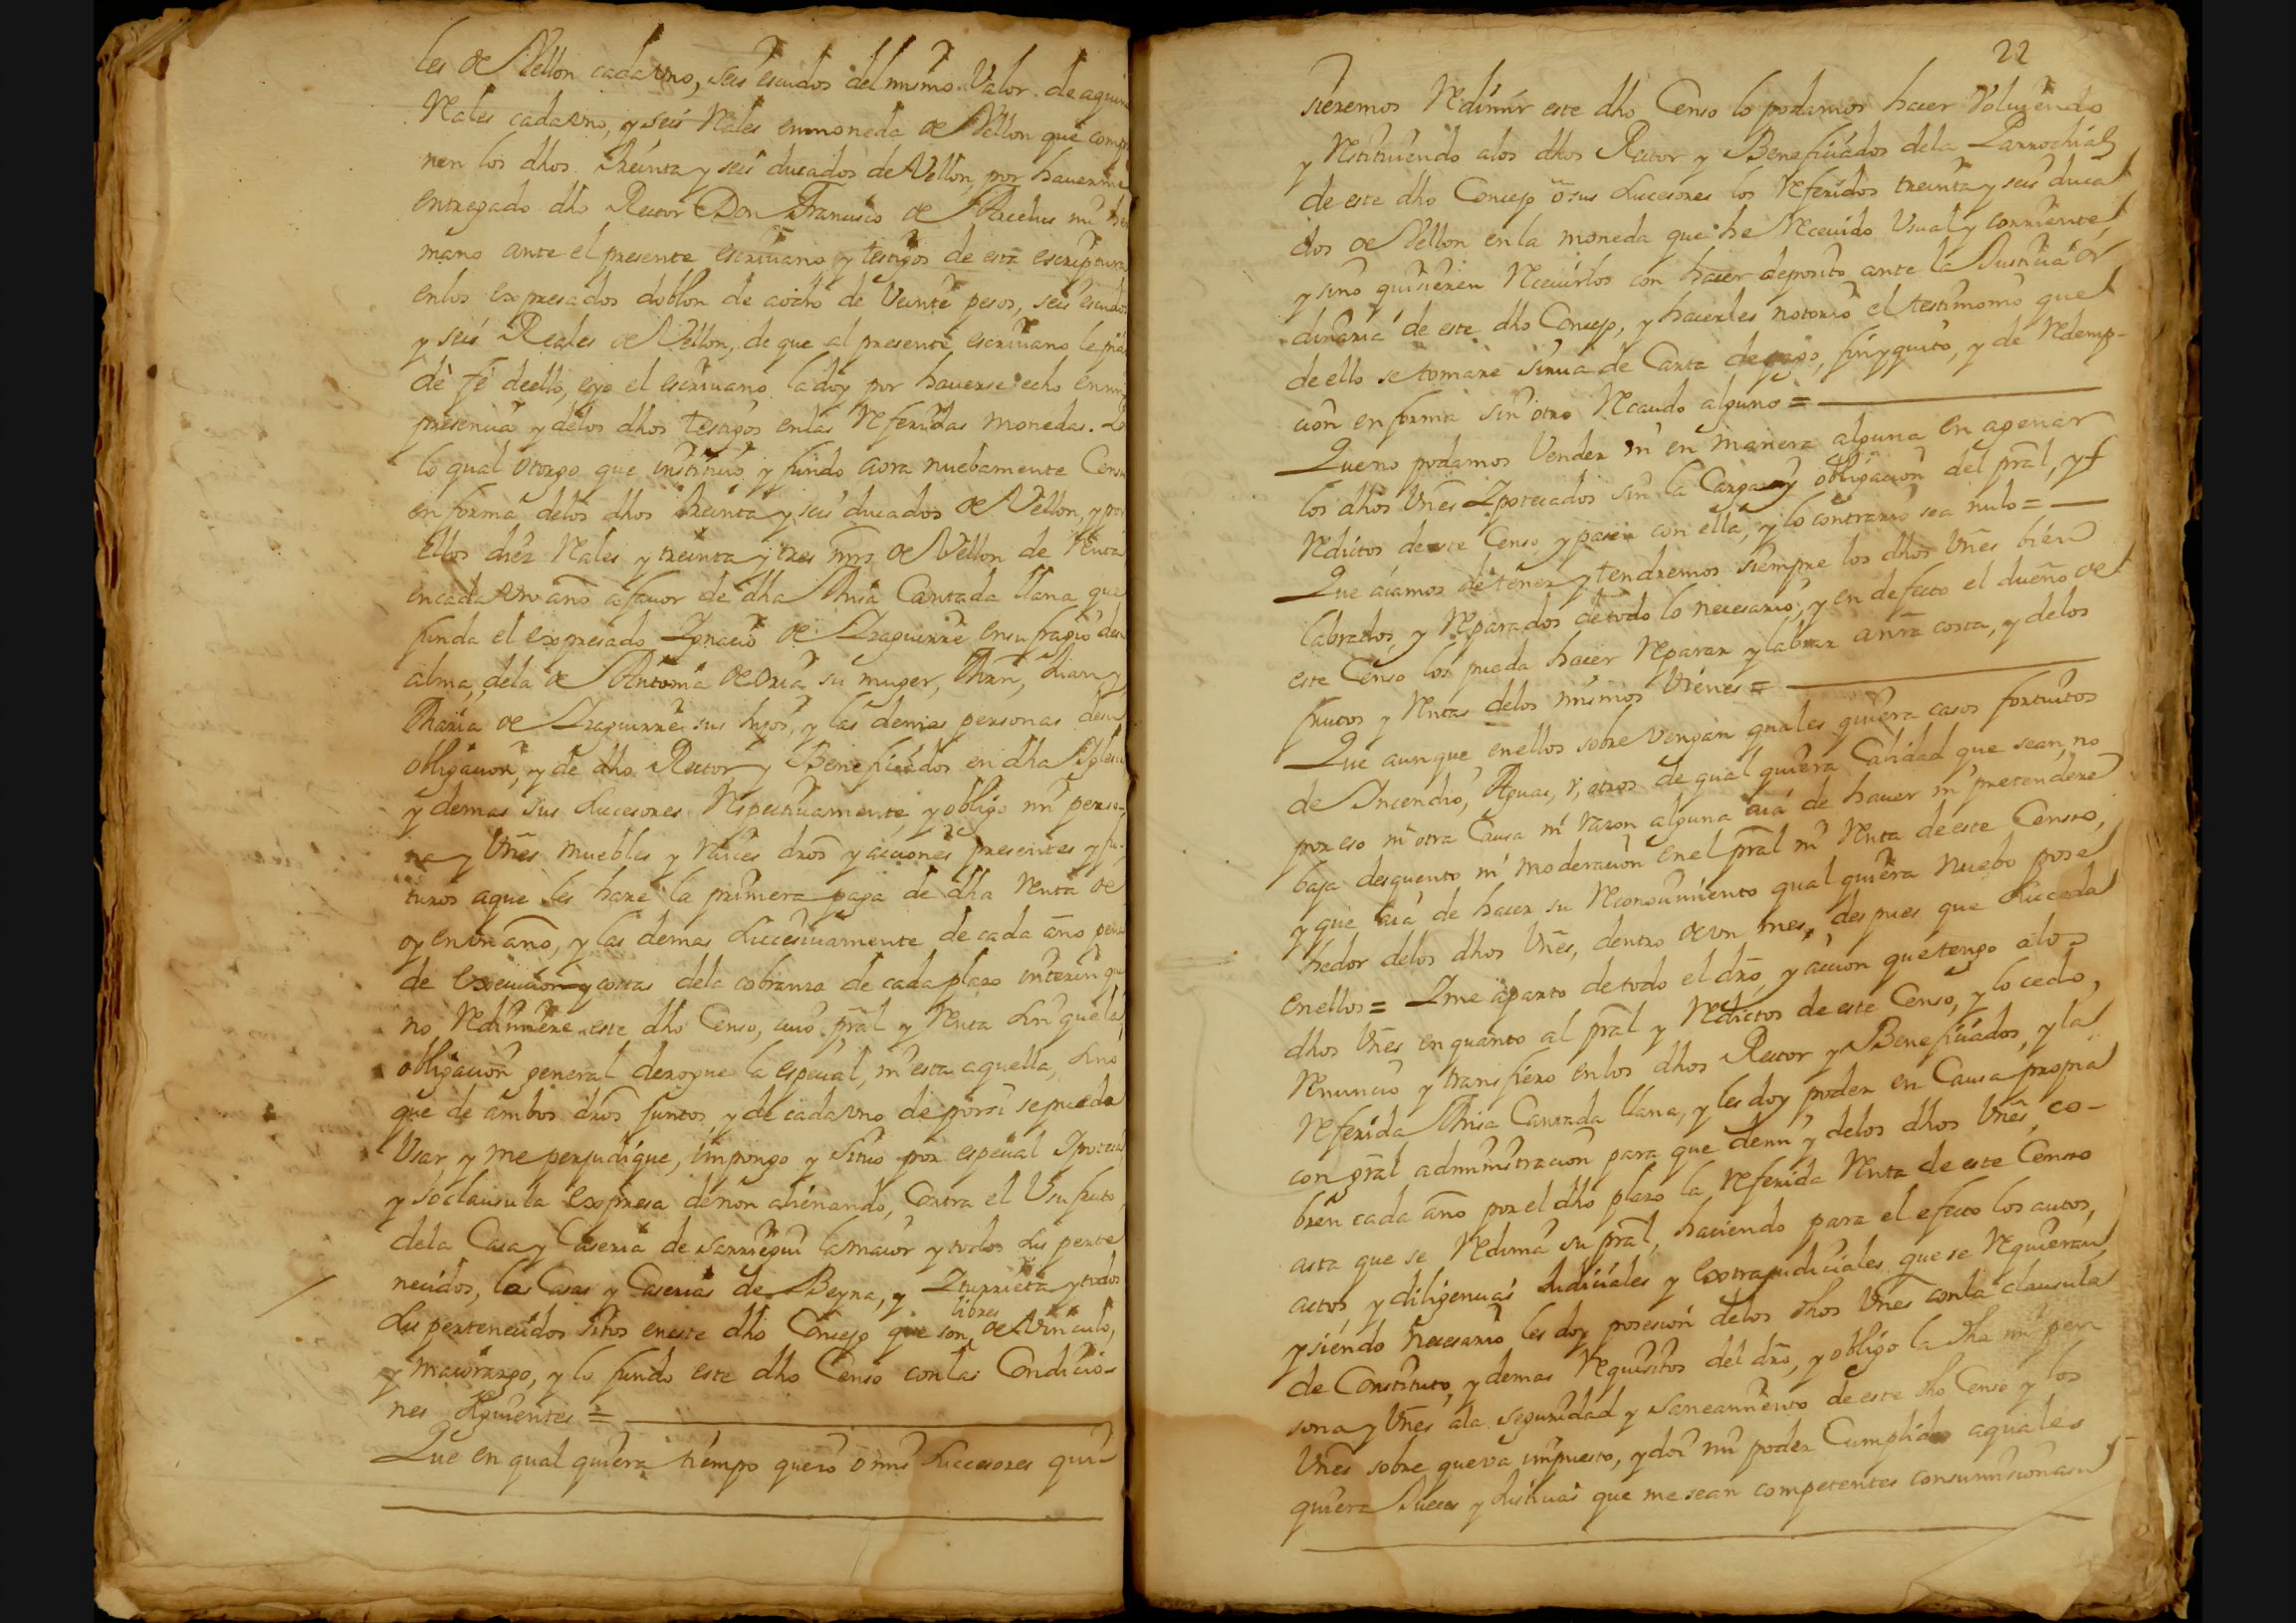 les de Vellon cada vno, seis escudos del mismo Valor de a quin
Reales cada vno, y seis Reales en moneda de Vellon que compo
nen los dhos treinta y seis ducados de Vellon, por hauerme
entregado dho Rector Don Francisco de Arcelus mi her
mano ante el presente escriuano y testigos de esta escriptura
en los expresados doblon de aocho de Veinte pesos, seis escudos
y seis Reales de Vellon, de que al presente escriuano le pido
dè fé deello, eyo el escriuano la doy por hauerse echo en mi
presencia y delos dhos testigos en las Referidas monedas.
lo qual otorgo que instituio y fundo aora nuebamente Censo
en forma delos dhos treinta y seis ducados de Vellon, y por
ellos diez Reales y treinta y tres mrs de Vellon de Renta
en cada vn año a fauor de dha Misa Cantada llana que
funda el expresado Ignacio de Izaguirre en sufragio desu
alma, dela de Antonia de Oria su muger, Mrn, Juan y
Maria de Izaguirre sus hijos, y las demas personas desu
obligacion, y de dho Rector y Beneficiados en dha Iglesia
y demas sus Sucesores Respectiuamente, y obligo mi perso-
na y Vñes muebles y raices dros y acciones presentes y fu-
turos aque les hare la primera paga de dha Renta de
oy en vn año, y las demas Succesiuamente de cada año pena
de execucion y costas dela cobranza de cada plazo interin que
no Redimiere este dho Censo, cuio pral y Renta Sin que la
obligacion general derogue la especial, ni esta aquella, Sino
que de ambos dros juntos, y de cada vno de porsi se pueda
Vsar, y me perjudique, impongo y Situo por especial Ipoteca
y so clausula expresa denon alienando, Contra el Vsufruto
dela Casa y Caseria de Sarriegui la maior y todos sus perte
necidos, las Casas y Caserias de Beyna, y Iturrieta y todos
libres
sus pertenecidos sitos en este dho Concejo que son de Vinculo,
y maiorazgo, y lo fundo este dho Censo con las Condicio-
nes Siguientes =
Que en qual quiera tiempo que io ò mis Succesores qui-
22
sieremos Redimir este dho Censo lo podamos hacer Voluiendo
y Restituiendo alos dhos Rector y Beneficiados dela Parrochial
de este dho Concejo ò sus Sucesores los Referidos treinta y seis duca
dos de Vellon en la moneda que he Receuido Vsual y corriente,
y sino quisieren Receuirlos con hacer deposito ante la Justicia or
dinaria de este dho Concejo, y hacerles notorio el testimonio que
de ello se tomare sirua de Carta de pago, fin y quito, y de Redemp-
cion en forma sin otro Recaudo alguno =
Que no podamos Vender ni en manera alguna en agenar
los dhos Vñes Ipotecados sin la Carga y obligacion del pral, y
Reditos de este Censo y pasen con ella, y lo contrario sea nulo =
Que aiamos de tener y tendremos siempre los dhos Vñes bien
labrados, y Reparados de todo lo necesario, y en defecto el dueño de
este Censo los pueda hacer Reparar y labrar añra costa, y delos
frutos y Rentas delos mismos Vienes =
Que aunque en ellos sobre vengan quales quiera casos fortuitos
de Incendio, Aguas, v, otros de qual quiera Calidad que sean, no
por eso ni otra Causa ni razon alguna aia de hauer ni pretendere
baja desquento ni moderacion en el pral ni Renta de este Censo,
y que aia de hacer su Reconocimiento qual quiera nuebo posee
hedor delos dhos Vñes, dentro de vn mes, despues que Succeda
en ellos = I me aparto de todo el dro, y accion que tengo alos
dhos Vñes en quanto al pral y Reditos de este Censo, y lo cedo,
Renuncio y transfiero en los dhos Rector y Beneficiados, y la
Referida Misa Cantada llana, y les doy poder en Causa propria
con gral administracion para que demi y delos dhos Vñes, co-
bren cada año por el dho plazo la Referida Renta de este Censo
asta que se Redima su pral, haciendo para el efecto los autos,
actos, y diligencias Judiciales y extrajudiciales que se Requieran,
y siendo necesario les doy posesion delos dhos Vñes con la clausula
de Constituto, y demas Requisitos del dro, y obligo la dha mi per
sona y Vñes ala seguridad y saneamiento de este dho Censo y los
Vñes sobre que va impuesto, y doi mi poder Cumplido a quales
quiera Jueces y Justicias que me sean competentes con sumision asu